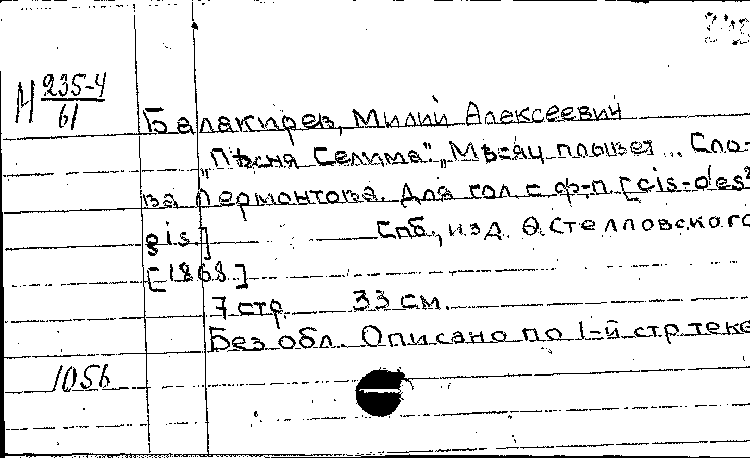 Н 235-4
61
Балакирев, Милий Алексеевич
„Пѣсня Селима". „Мѣсяц плывет... Сло-
ва Лермонтова. Для гол с ф-п. [cis-des²
gis.] Спб., изд. Ѳ. Стелловского
[1868.]
7 стр. 33 см.
Без обл. Описано по 1-й стр. текс
1056